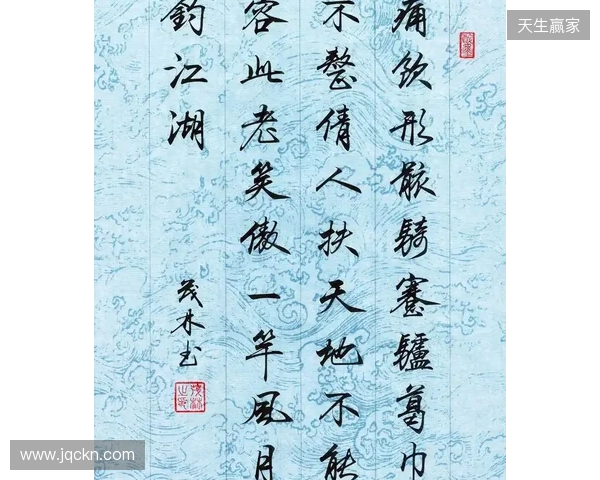 天生赢家
痛饮形骸騎蹇驢葛巾
不整倩人扶天地不能
容此老笑傲一竿風月
釣江湖
茂林书
www.jqckn.com